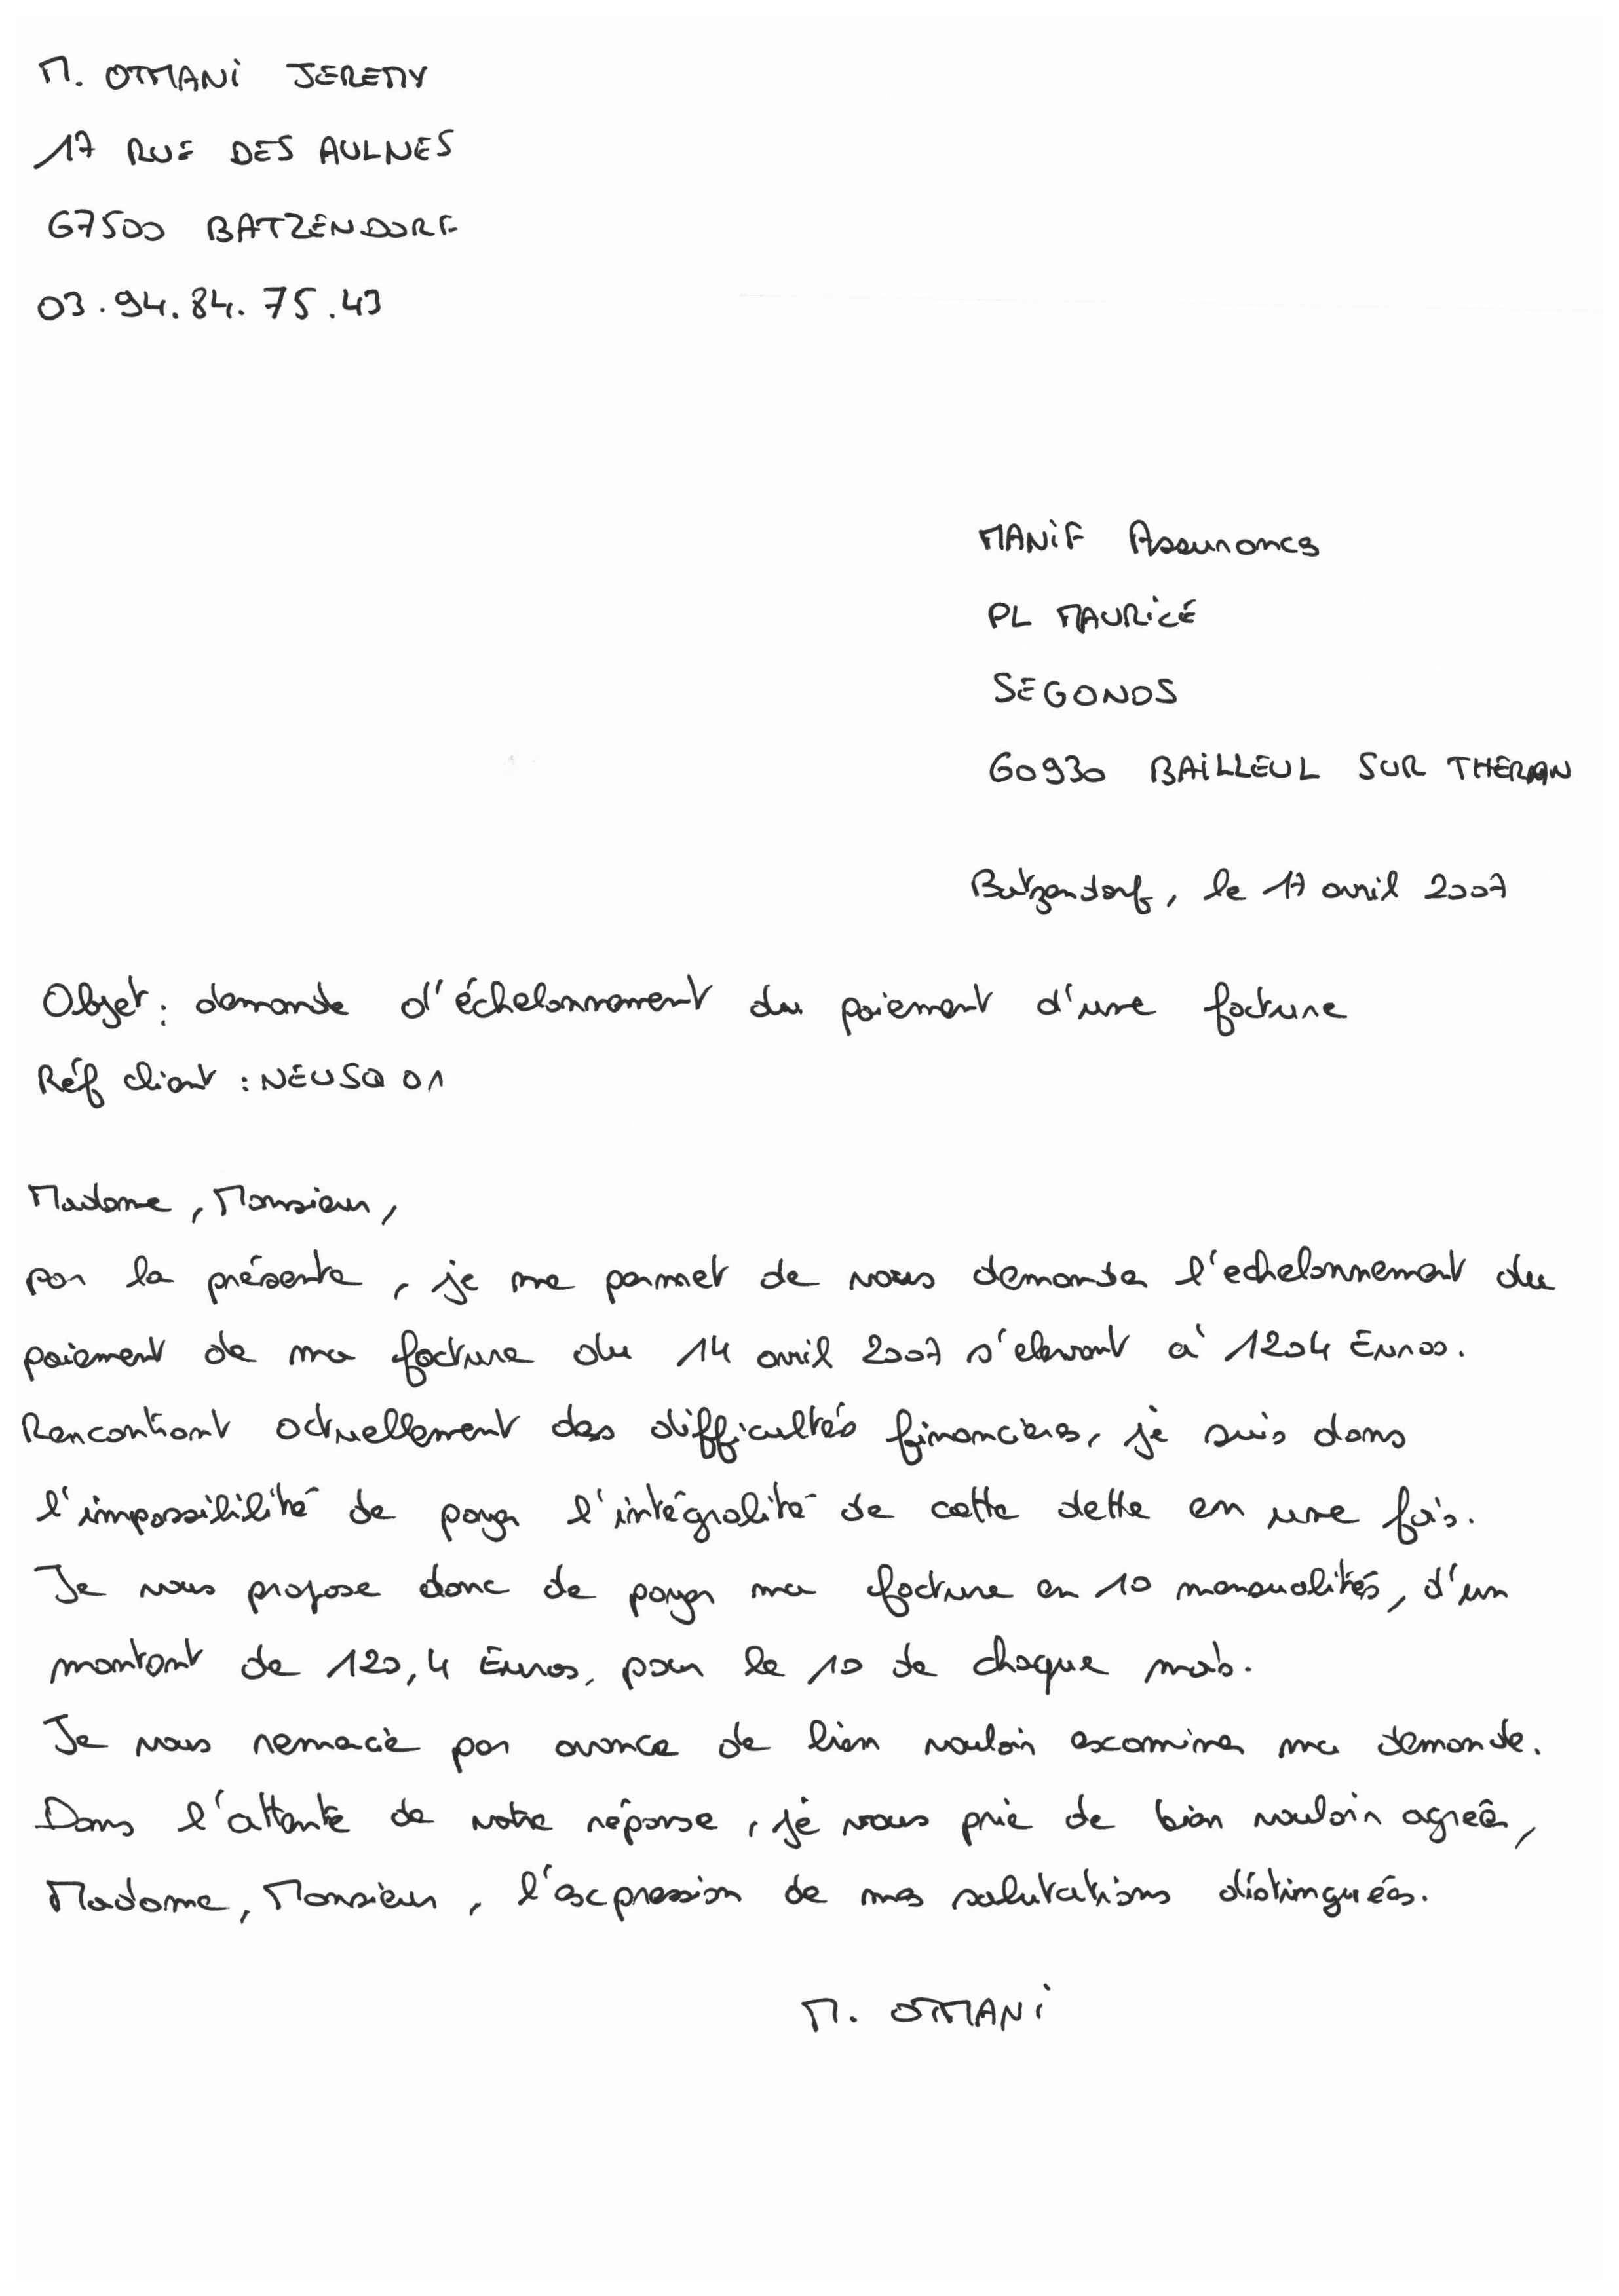 M. OTMANI JEREMY
17 RUE DES AULNES
67500 BATZENDORF
03.94.84.75.43
MANIF Assurances
PL MAURICE
SEGONDS
60930 BAILLEUL SUR THERAIN
Batzendorf, le 17 avril 2007
Objet : demande d'échelonnement du paiement d'une facture
Réf client : NEUSQ01
Madame, Monsieur,
par la présente, je me permet de vous demander l'echelonnement du
paiement de ma facture du 14 avril 2007 s'elevant à 1204 Euros.
Rencontrant actuellement des difficultés financières, je suis dans
l'impossibilité de payer l'intégralité de cette dette en une fois.
Je vous propose donc de payer ma facture en 10 mensualités, d'un
montant de 120,4 Euros, pour le 10 de chaque mois.
Je vous remercie par avance de bien vouloir examiner ma demande.
Dans l'attente de votre réponse, je vous prie de bien vouloir agréer,
Madame, Monsieur, l'expression de mes salutations distinguées.
M. OTMANI